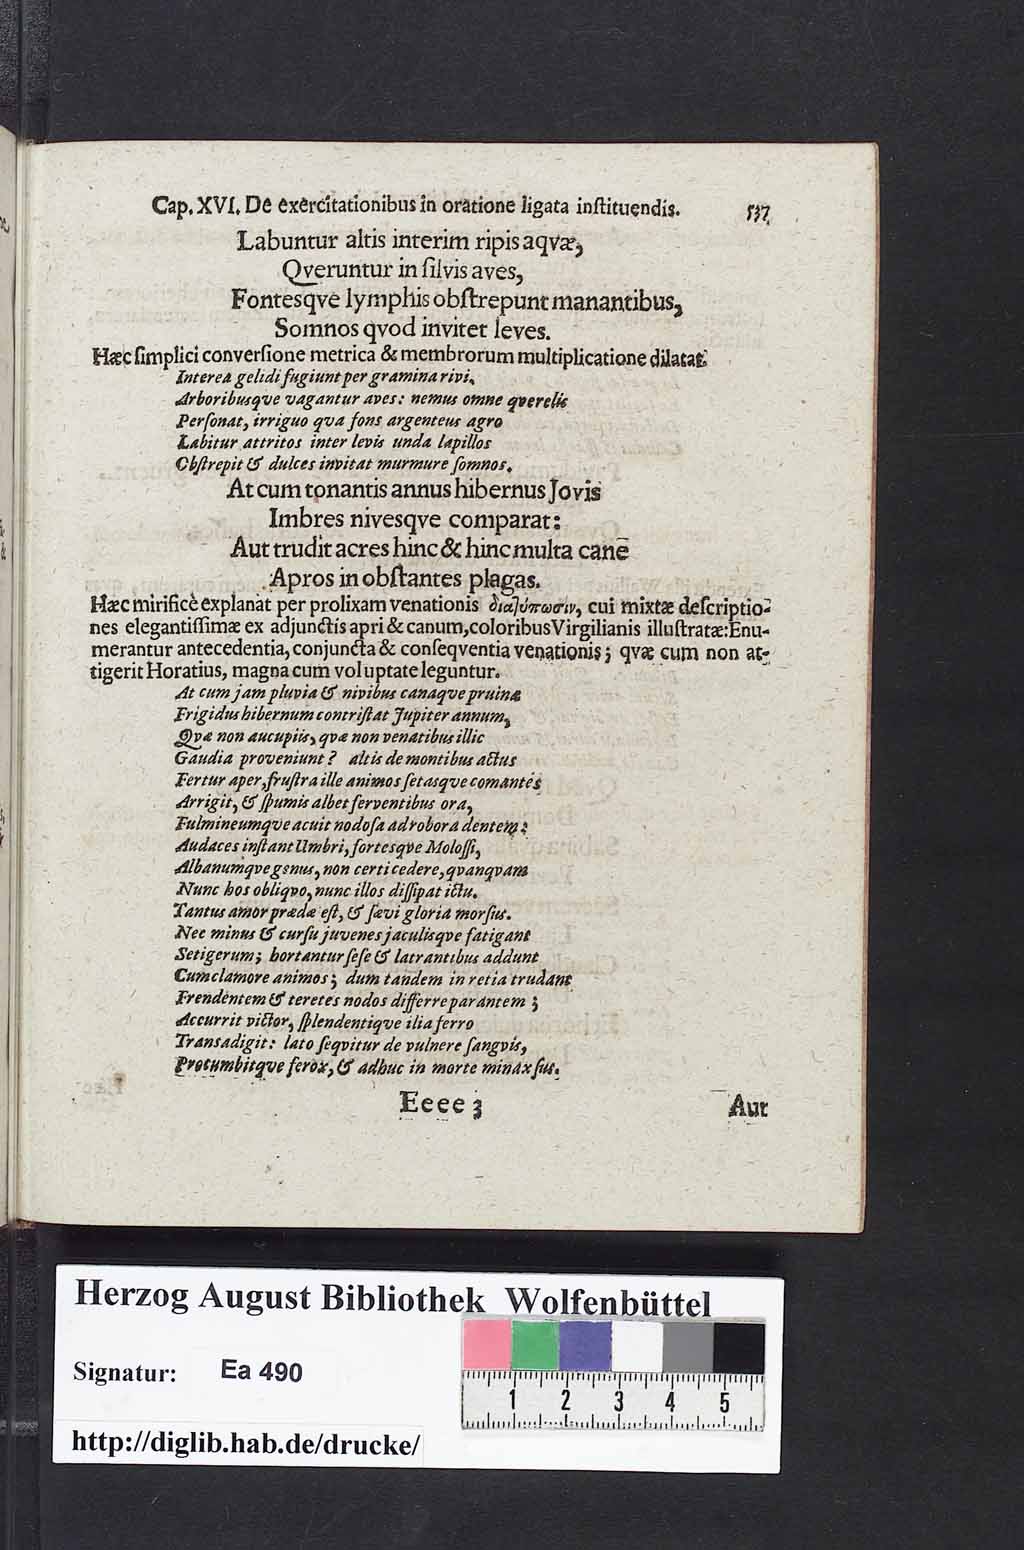 Cap. XVI. De exercitationibus in oratione ligata inſtituendis. 537
Labuntur altis interim ripis aqvæ,
Qveruntur in ſilvis aves,
Fontesqve lymphis obſtrepunt manantibus,
Somnos qvod invitet leves.
Hæc ſimplici converſione metrica & membrorum multiplicatione dilatat:
Interea gelidi fugiunt per gramina rivi,
Arboribusqve vagantur aves: nemus omne qverelis
Perſonat, irriguo qva fons argenteus agro
Labitur attritos inter levis unda lapillos
Obſtrepit & dulces invitat murmure ſomnos.
At cum tonantis annus hibernus Jovis
Imbres nivesqve comparat:
Aut trudit acres hinc & hinc multa canē
Apros in obſtantes plagas.
Hæc mirificè explanat per prolixam venationis διατύπωσιν, cui mixtæ deſcriptio-
nes elegantiſſimæ ex adjunctis apri & canum, coloribus Virgilianis illuſtratæ: Enu-
merantur antecedentia, conjuncta & conſeqventia venationis; qvæ cum non at-
tigerit Horatius, magna cum voluptate leguntur.
At cum jam pluvia & nivibus canaqve pruina
Frigidus hibernum contriſtat Jupiter annum,
Qvæ non aucupiis, qvæ non venatibus illic
Gaudia proveniunt? altis de montibus actus
Fertur aper, fruſtra ille animos ſetasqve comantés
Arrigit, & ſpumis albet ferventibus ora,
Fulmineumqve acuit nodoſa ad robora dentem:
Audaces inſtant Umbri, fortesqve Moloſſi,
Albanumqve genus, non certi cedere, qvanqvam
Nunc hos obliqvo, nunc illos diſſipat ictu.
Tantus amor prædæ eſt, & ſævi gloria morſus.
Nec minus & curſu juvenes jaculisqve fatigant
Setigerum; hortantur ſeſe & latrantibus addunt
Cum clamore animos; dum tandem in retia trudant
Frendentem & teretes nodos differre parantem;
Accurrit victor, ſplendentiqve ilia ferro
Transadigit: lato ſeqvitur de vulnere ſangvis,
Procumbitqve ferox, & adhuc in morte minax ſus.
Eeee 3 Aut
Herzog August Bibliothek Wolfenbüttel
Signatur: Ea 490
1 2 3 4 5
http://diglib.hab.de/drucke/